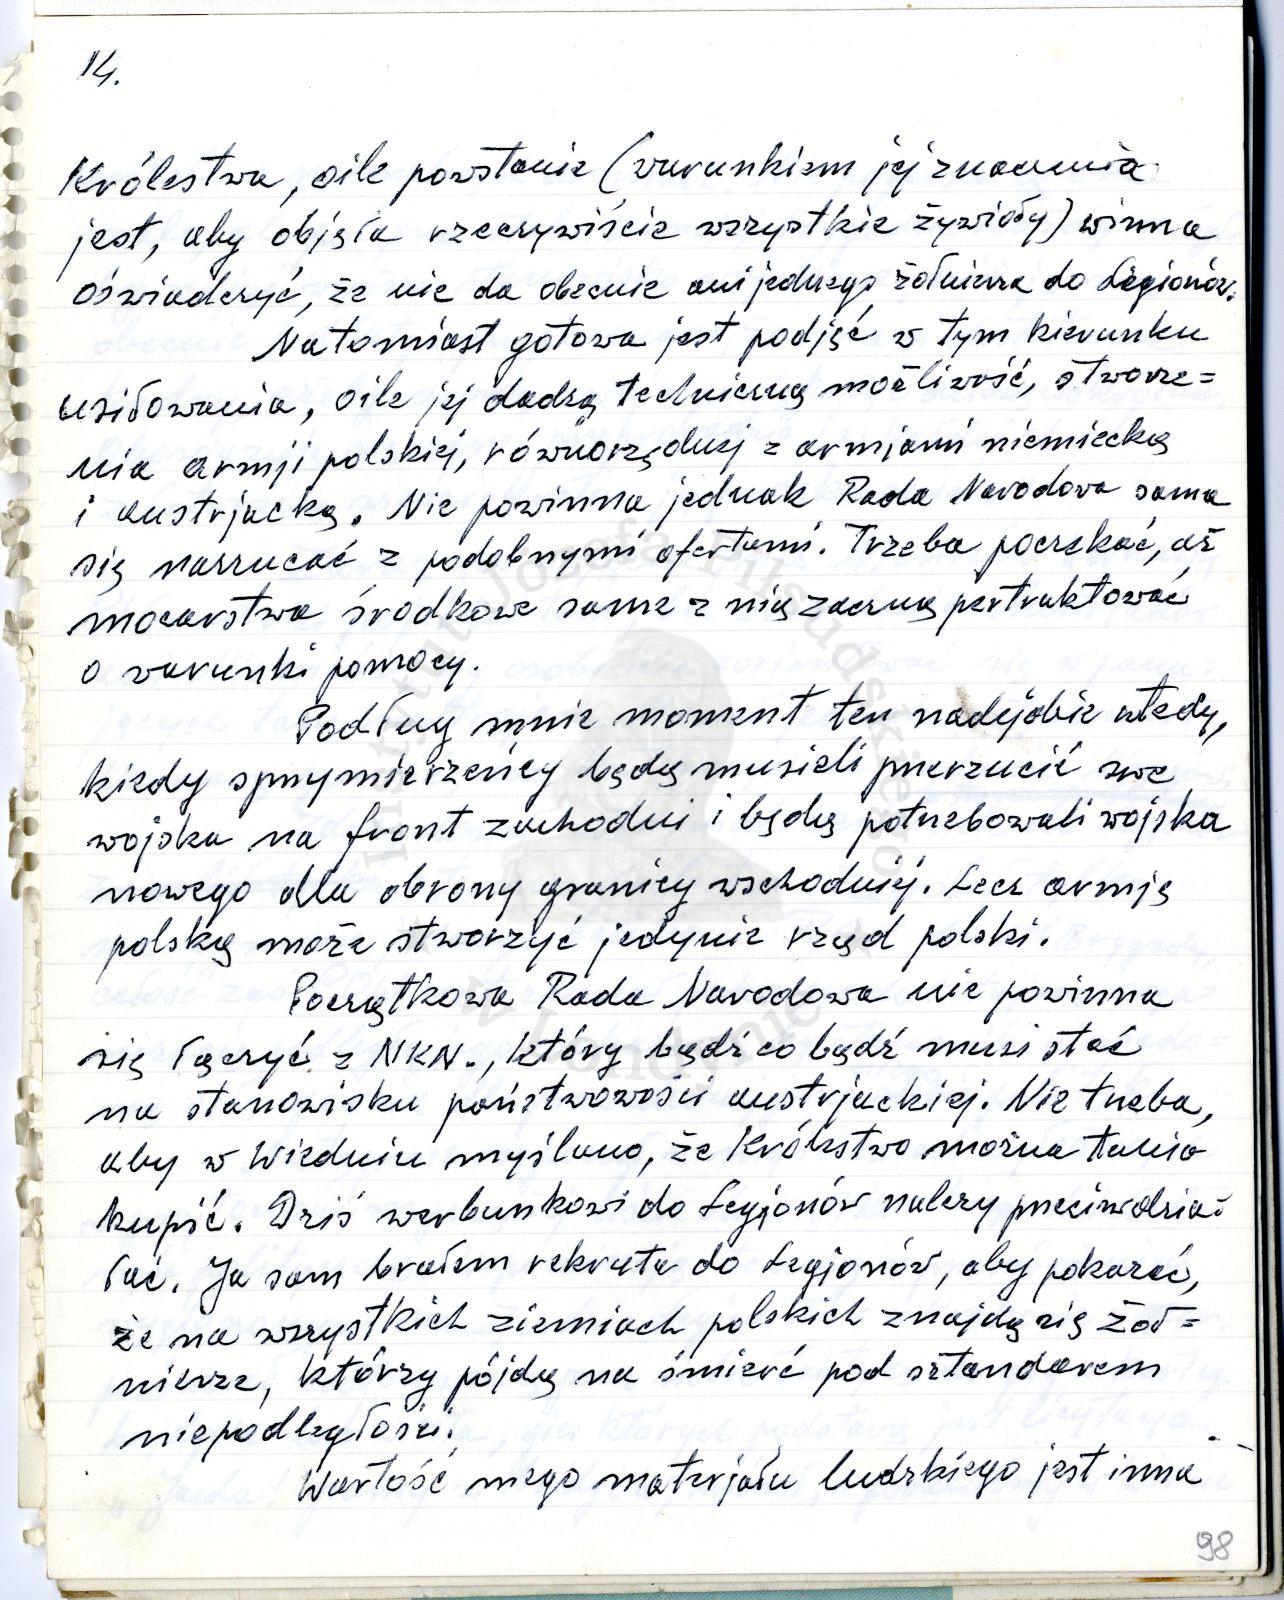 14.
Królestwa, oile powstanie (warunkiem jej znaczenia
jest, aby objęła rzeczywiście wszystkie żywioły) winna
oświadczyć, że nie da obecnie ani jednego żołnierza do Legionów.
Natomiast gotowa jest podjąć w tym kierunku
usiłowania, oile jej dadzą techniczną możliwość, stworze=
nia armji polskiej, równorzędnej z armjami niemiecką
i austrjacką. Nie powinna jednak Rada Narodowa sama
się narzucać z podobnymi ofertami. Trzeba poczekać, aż
mocarstwa środkowe same z nią zaczną pertraktować
o warunki pomocy.
Podług mnie moment ten nadejdzie wtedy,
kiedy sprzymierzeńcy będą musieli przerzucić swe
wojska na front zachodni i będą potrzebowali wojska
nowego dla obrony granicy wschodniej. Lecz armję
polską może stworzyć jedynie rząd polski.
Początkowa Rada Narodowa nie powinna
się łączyć z NKN., który bądź co bądź musi stać
na stanowisku państwowości austrjackiej. Nie trzeba,
aby w Wiedniu myślano, że Królestwo można tanio
kupić. Dziś werbunkowi do Legjonów należy przeciwdzia=
łać. Ja sam brałem rekruta do Legjonów, aby pokazać,
że na wszystkich ziemiach polskich znajdą się żoł=
nierze, którzy pójdą na śmierć pod sztandarem
niepodległości.
Wartość mego materjału ludzkiego jest inna
98